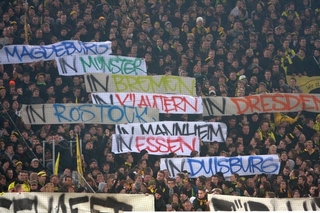 MAGDEBURG
IN MÜNSTER
IN BREMEN
IN K'LAUTERN
IN DRESDEN
IN ROSTOCK
IN MANNHEIM
IN ESSEN
IN DUISBURG